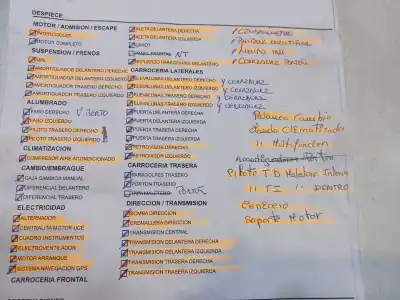 DESPIECE
MOTOR / ADMISION / ESCAPE
INTERCOOLER
MOTOR COMPLETO
SUSPENSION / FRENOS
ABS
AMORTIGUADOR DELANTERO DERECHO
AMORTIGUADOR DELANTERO IZQUIERDO
AMORTIGUADOR TRASERO DERECHO
AMORTIGUADOR TRASERO IZQUIERDO
ALUMBRADO
FARO DERECHO
FARO IZQUIERDO
PILOTO TRASERO DERECHO
PILOTO TRASERO IZQUIERDO
CLIMATIZACION
COMPRESOR AIRE ACONDICIONADO
CAMBIO/EMBRAGUE
CAJA CAMBIOS MANUAL
DIFERENCIAL DELANTERO
DIFERENCIAL TRASERO
ELECTRICIDAD
ALTERNADOR
CENTRALITA MOTOR UCE
CUADRO INSTRUMENTOS
ELECTROVENTILADOR
MOTOR ARRANQUE
SISTEMA NAVEGACION GPS
CARROCERIA FRONTAL
ALETA DELANTERA DERECHA
ALETA DELANTERA IZQUIERDA
CAPOT
PANEL FRONTAL NT
REFUERZO PARAGOLPES DELANTERO
CARROCERIA LATERALES
ELEVALUNAS DELANTERO DERECHO
ELEVALUNAS DELANTERO IZQUIERDO
ELEVALUNAS TRASERO DERECHO
ELEVALUNAS TRASERO IZQUIERDO
PUERTA DELANTERA DERECHA
PUERTA DELANTERA IZQUIERDA
PUERTA TRASERA DERECHA
PUERTA TRASERA IZQUIERDA
RETROVISOR DERECHO
RETROVISOR IZQUIERDO
CARROCERIA TRASERA
PARAGOLPES TRASERO
PORTON TRASERO
TAPA MALETERO
DIRECCION / TRANSMISION
BOMBA DIRECCION
CREMALLERA DIRECCION
TRANSMISION CENTRAL
TRANSMISION DELANTERA DERECHA
TRANSMISION DELANTERA IZQUIERDA
TRANSMISION TRASERA DERECHA
TRANSMISION TRASERA IZQUIERDA
Palanca Cambio
Mando Climatizador
11 Multifuncion
Piloto T.D Maletero
11 T I 11
Soporte Motor